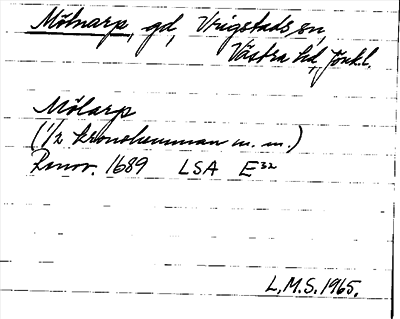 Mölnarp, gd, Vrigstads sn,
Västra hd, Jönk l.
Mölarp
(1/2 kronohemman m. m.)
Renov. 1689 LSA E³²
L.M.S. 1965.